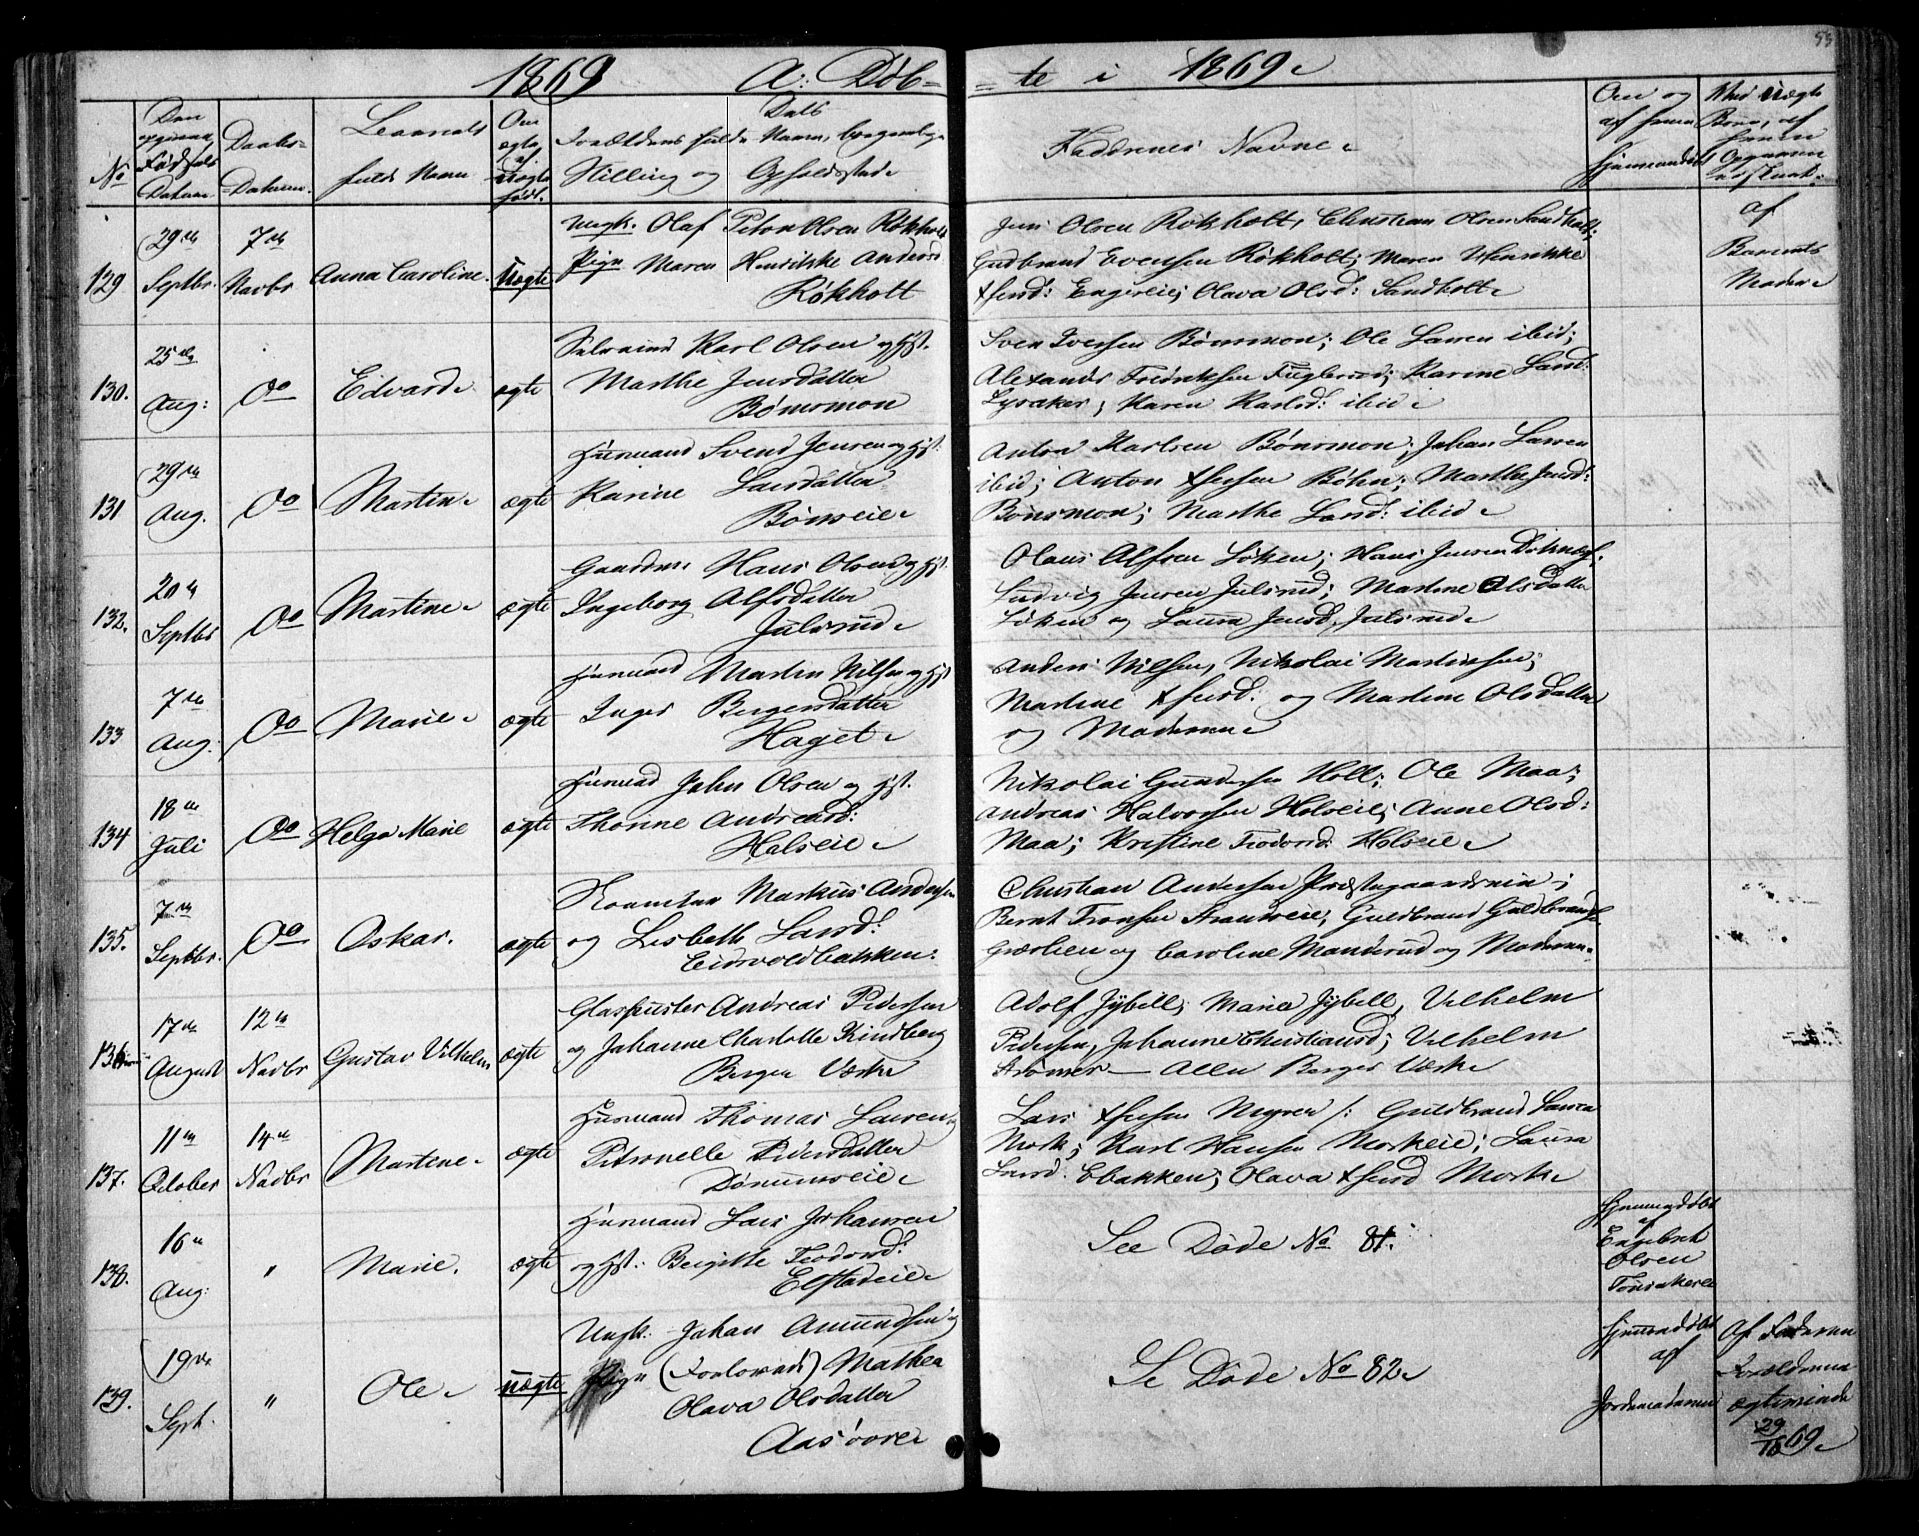 1869 A: Døb= =te i 1869.
55
No
Den opgivne Fødsels Datum
Daabs= =Datum.
Barnets fulde Navn
Om ægte el. Uægte født.
Forældrenes fulde Navn, borgerlige
Stilling og Opholdssted
Faddernes Navne
Om og af hvem hjemmedøbt
Ved Uægte Børn, af hvem Opgaven
129
29de Septbr.
7de Novbr
Anna Caroline.
Uægte
Ungk. Olaf Peter Olsen Røkholt
Pige Maren Henrikke Andersd
Røkholt
Jens Olsen Røkholt, Christian Olsen Sandholt;
Gudbrand Evensen Røkholt; Maren Henrikke
Engereie; Olava Olsd: Sandholt
af Barnets Moder
130.
25de Aug:
Do
Edvard
ægte
Selveier Karl Olsen og Hst.
Marthe Jensdatter
Bønsmoen
Sven Iversen Bønsmoen; Ole Larsen ibid;
Alexander Fredriksen Fuglerud; Karine Larsd:
Lysaker; Karen Karlsd: ibid
131
29de Aug.
Do
Martin
ægte
Husmand Svend Jensen og Hst:
Karine Larsdatter
Bønseie
Anton Karlsen Bønsmoen; Johan Larsen
ibid; Anton Bøhn; Marthe Jensd:
Bønsmoen; Marthe Larsd: ibid
132.
20de Septbr
Do
Martine
ægte
Gaardm. Hans Olsen og Hst.
Ingeborg Alfsdatter
Julsrud
Olaus Alfsen Løken; Hans Jensen
Ludvig Jensen Julsrud; Martine Olsdatter
Løken og Laura Jensd, Julsrud
133
7de Aug.
Do
Marie
ægte
Husmand Martin Nilsen og Hst
Inger Bergersdatter
Haget
Anders Nilsen, Nikolai Martinsen;
Martine og Martine Olsdatter
og Moderen
134
18de Juli
Do
Helga Marie
ægte
Husmand John Olsen og Hst.
Thorine Andreasd:
Holseie
Nikolai Gundersen Holl; Ole Maa;
Andreas Halvorsen Holseie; Anne Olsd:
Maa; Kristine Frodesd: Holseie
135.
7de Septbr.
Do
Oskar.
ægte
Markus Andersen
og Lisbeth Larsd:
Eidsvoldbakken:
Christian Andersen Præstegaardseie;
Bernt Fronsen Strandseie; Guldbrand Guldbrands.
og Caroline Manderud og Moderen
136
17de August
12te Novbr
Gustav Vilhelm
ægte
Glaspuster Andreas Pedersen
og Johanne Charlotte Kindberg
Berger Værk
Adolf Jÿbell; Marie Jÿbell, Vilhelm
Pedersen, Johanne Christiansd; Vilhelm
Strømer — Alle Berger Værk
137.
11te October
14de Novbr
Martine
ægte
Husmand Thomas Larsen og
Petronelle Pedersdatter
Dønnumseie
Lars Myren /: Guldbrand Larsen
Mork; Karl Hansen Morkeie; Laura
Larsd: Ebakken; Olava Mork
138.
16de Aug:
"
Marie.
ægte
Husmand Lars Johansen
og Hst: Birgitte Frodesd:
Elstadeie
See Døde No 81.
Hjemmedøbt af Engebret Olsen
139.
19de Sept.
"
Ole
uægte
Ungk: Johan Amundsen og
Pige (Forlovede) Mathea
Olava Olsdatter
Aasøvre
Se Døde No 82
Hjemmedøbt af Jordemoderen
Af Faderen Forældrene ægteviede 29/10 69.